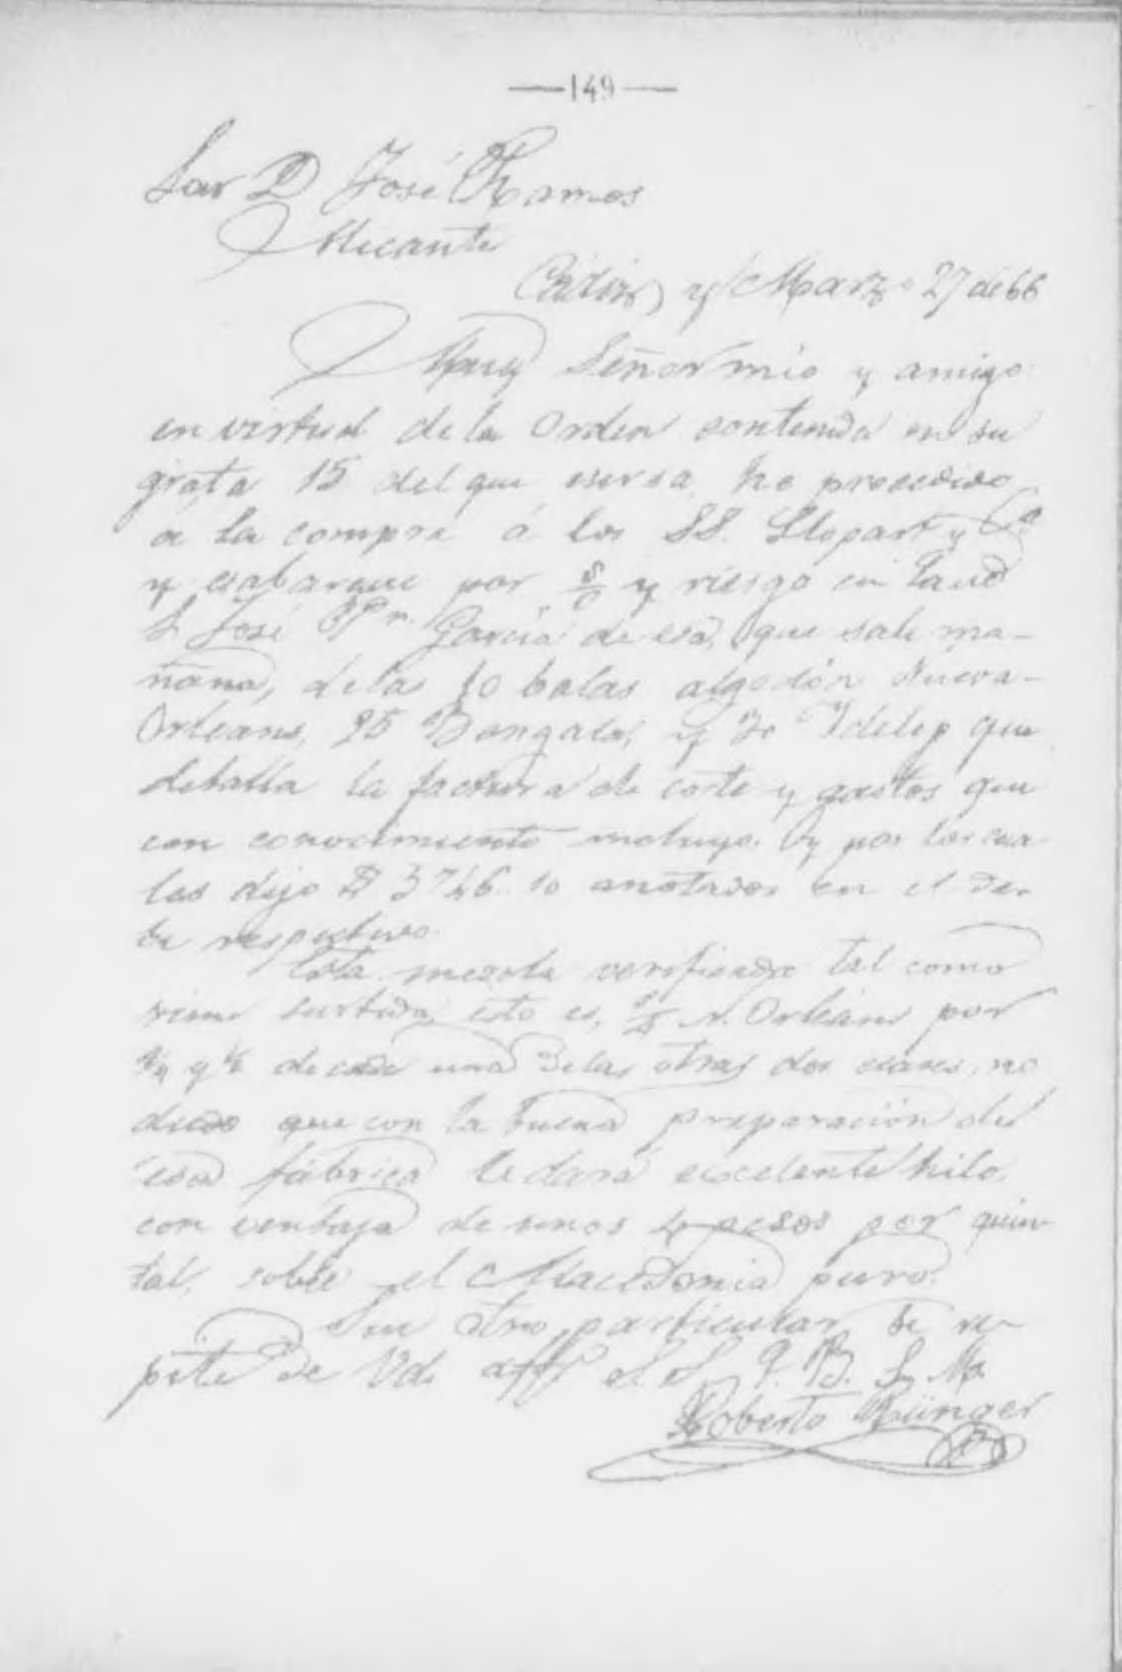 —149—
Sor D José Ramos
Alicante
Cádiz y Marzo 27 de 66
Muy Señor mío y amigo:
en virtud de la Orden contenida en su
grata 15 del que cursa, he procedido
a la compra á los SS. Llopart y Ca
y embarque por s/c y riesgo en laud
S. José Pn. García de esa, que sale ma-
ñana, de las 10 balas algodón Nueva-
Orleans, 25 Bengala, y 30 que
detalla la factura de coste y gastos que
con conocimiento incluyo. y por los cua-
les dejo 3746.10 anotados en el de-
be respectivo.
Esta mezcla verificada tal como
viene surtida, esto es, N. Orleans por
y de cada una de las otras dos clases, no
dudo que con la buena preparación de
esa fábrica le dará excelente hilo,
con ventaja de unos 4 pesos por quin-
tal, sobre el Macedonia puro.
Sin otro particular se re-
pite de Vd. aff S. S. Q. B. S. M.
Roberto Rünger